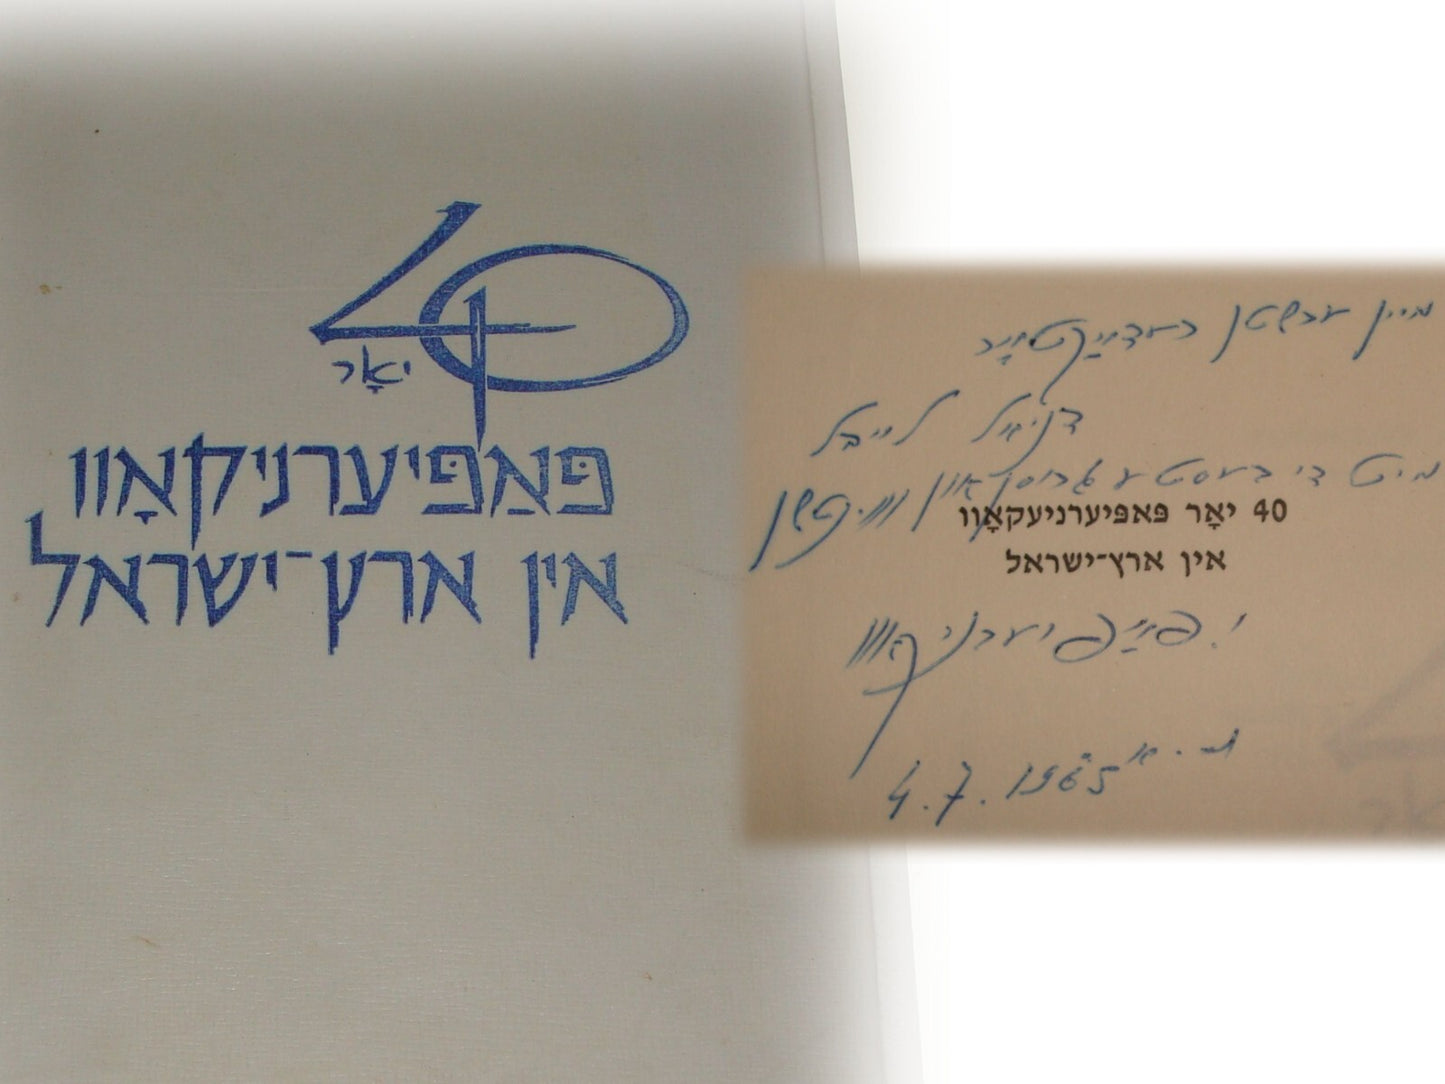 40
יאָר
פּאַפּיערניקאָוו
אין ארץ־ישראל
מיין ערשטן רעדאַקטאָר
דניאל לייבל
מיט די בעסטע גרוסן און ווינטשן
40 יאָר פּאפּיערניעקאָוו
אין ארץ־ישראל
י. פּאַפּיערניקאָוו
ת–א
4.7.1965